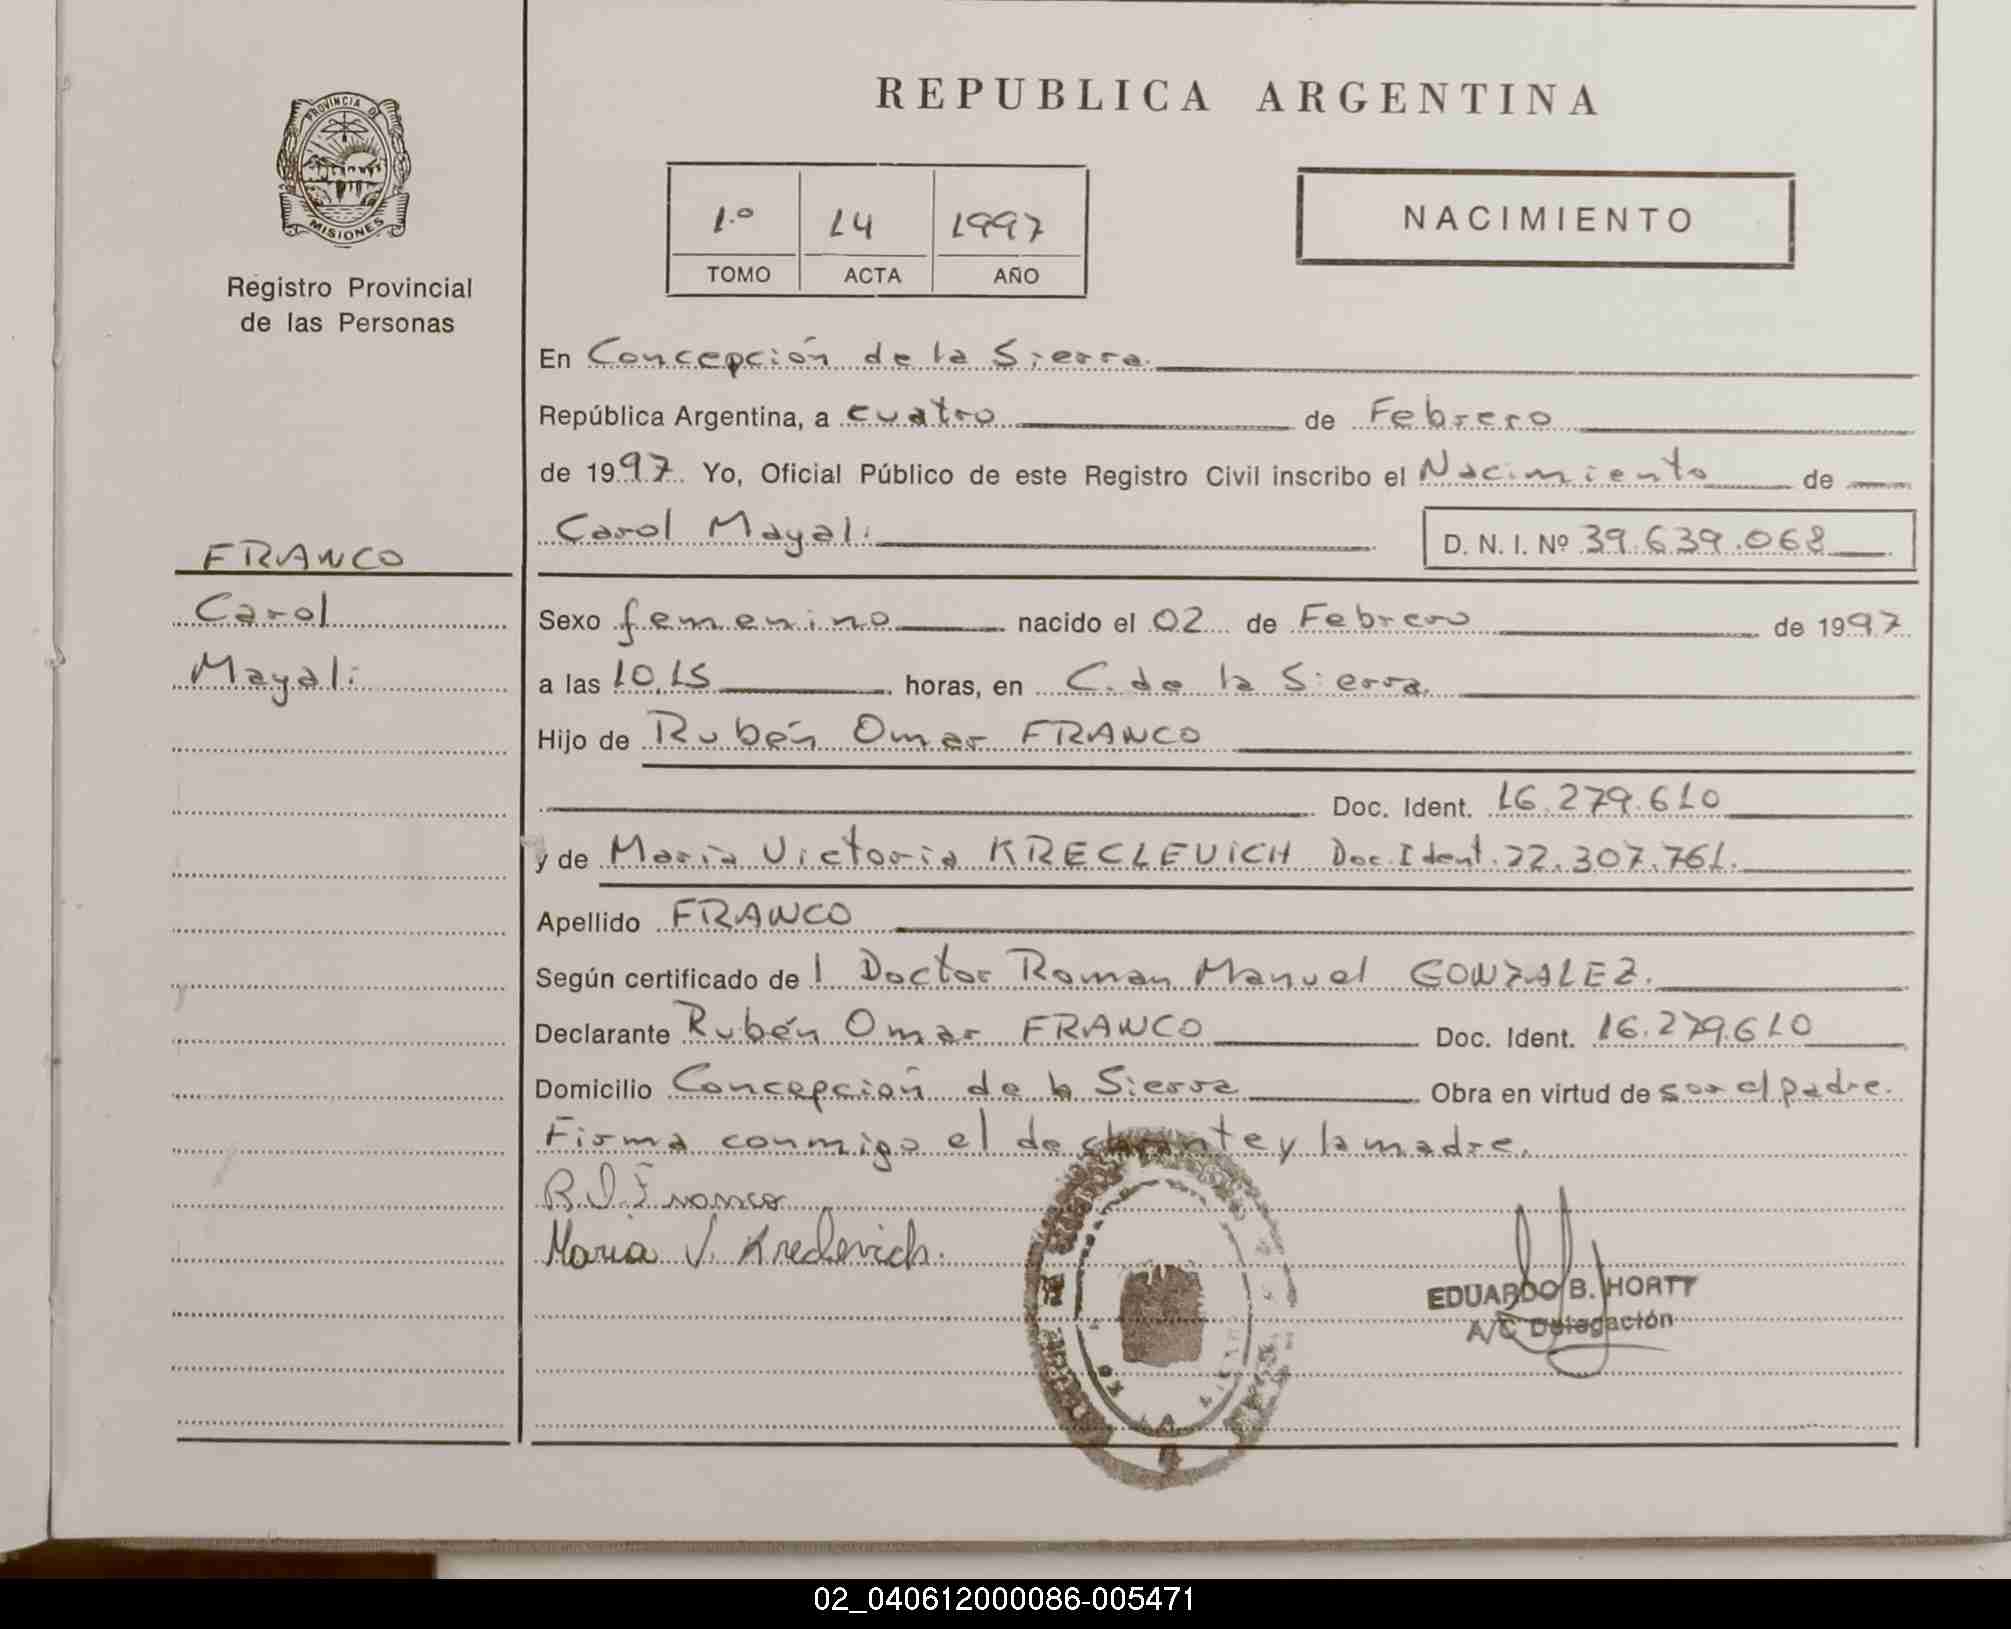 REPUBLICA ARGENTINA
PROVINCIA DE
MISIONES
Registro Provincial
de las Personas
1.º 14 1997
TOMO ACTA AÑO
NACIMIENTO
En Concepción de la Sierra.
República Argentina, a cuatro de Febrero
de 1997. Yo, Oficial Público de este Registro Civil inscribo el Nacimiento de
Carol Mayali D. N. I. Nº 39.639.068
FRANCO
Carol
Mayali
Sexo femenino nacido el 02 de Febrero de 1997
a las 10,15 horas, en C. de la Sierra.
Hijo de Rubén Omar FRANCO
Doc. Ident. 16.279.610
y de Maria Victoria KRECLEVICH Doc. Ident. 22.307.761.
Apellido FRANCO
Según certificado de l Doctor Roman Manuel GONZALEZ.
Declarante Rubén Omar FRANCO Doc. Ident. 16.279.610
Domicilio Concepción de la Sierra Obra en virtud de ser el padre.
Firma conmigo el declarante y la madre.
R.O. Franco
Maria V. Kreclevich.
EDUARDO B. HORTT
A/C Delegación
02_040612000086-005471